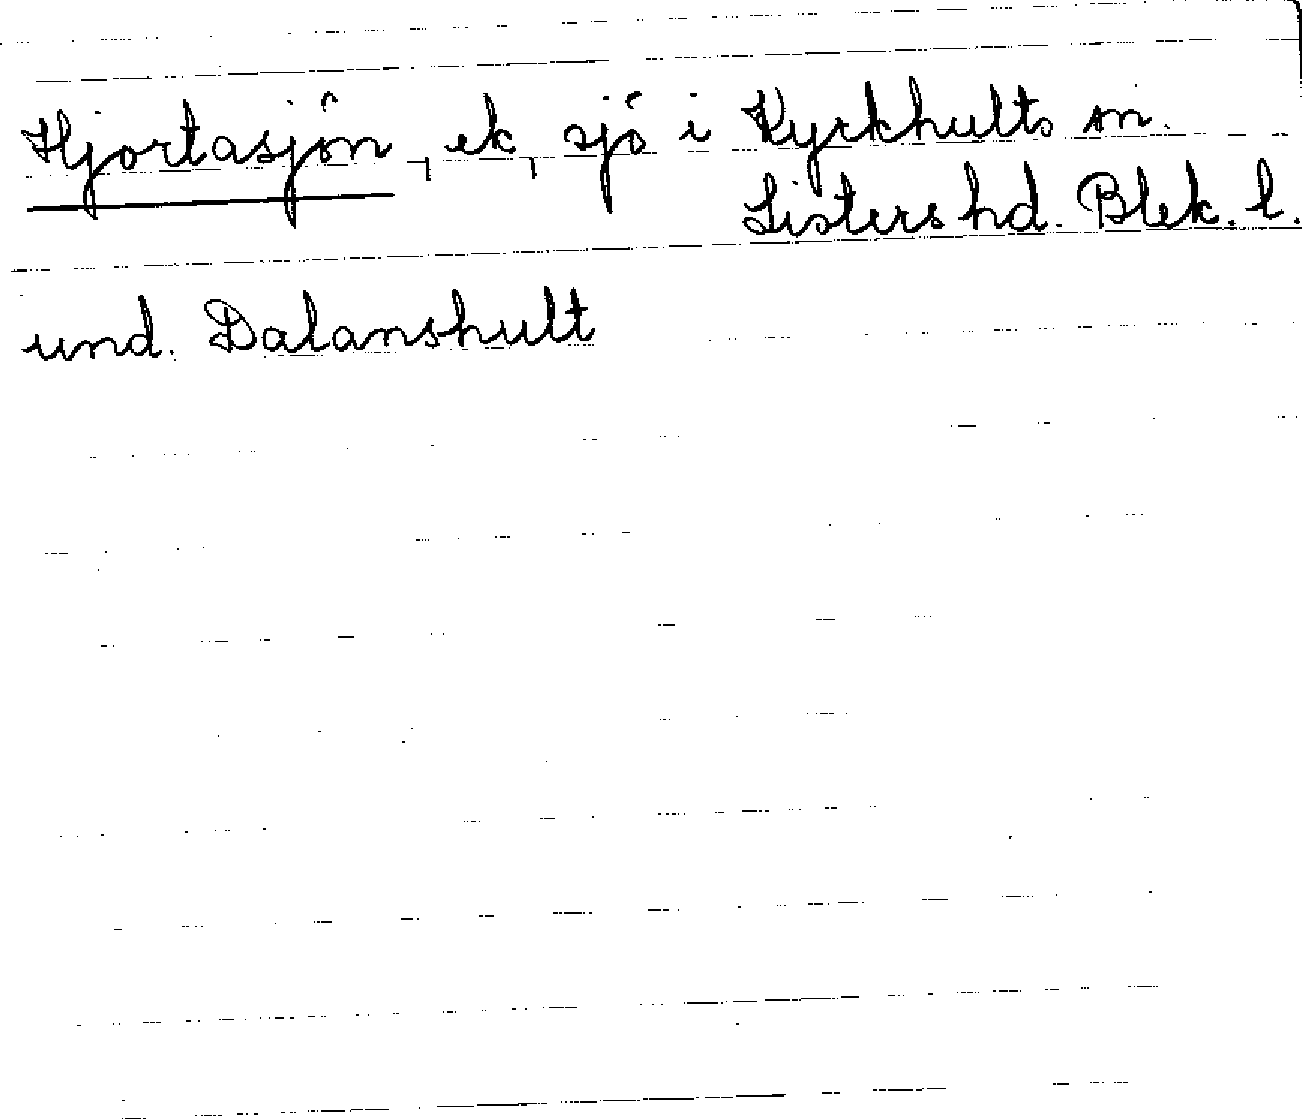 Hjortasjön, ek, sjö i Kyrkhults sn.
Listers hd. Blek. l.
und. Dalanshult